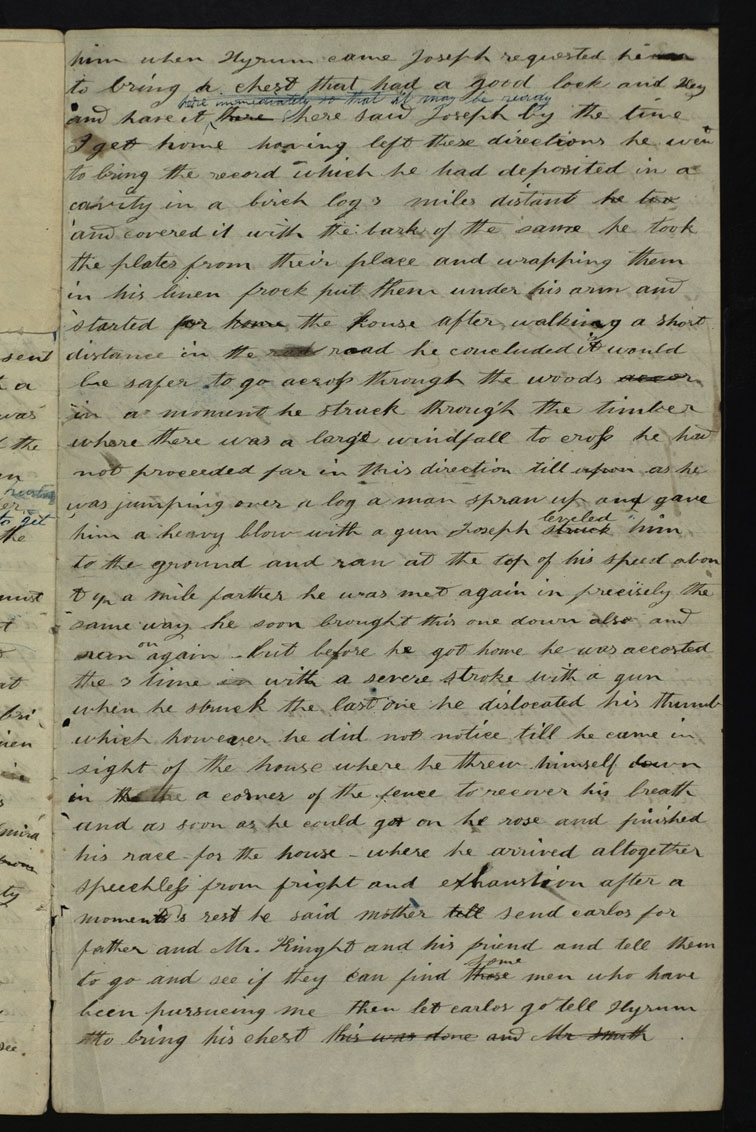 him when Hyrum came Joseph requested him
to bring a chest that had a good lock and Key
here immediately so that it may be ready
and have it here here said Joseph by the time
I get home having left these directions he went
to bring the record which he had deposited in a
cavity in a birch log 3 miles distant he too
and covered it with the bark of the same he took
the plates from their place and wrapping them
in his linen frock put them under his arm and
started for home the house after walking a short
distance in the road he concluded it would
be safer to go across through the woods
in a moment he struck through the timber
where there was a large windfall to cross he had
not proceeded far in this direction till upon as he
was jumping over a log a man spran up and gave
leveled
him a heavy blow with a gun Joseph struck him
to the ground and ran at the top of his speed abou
t ½ a mile farther he was met again in precisely the
same way he soon brought this one down also and
on
ran again but before he got home he was accosted
the 3 time in with a severe stroke with a gun
when he struck the last one he dislocated his thumb
which however he did not notice till he came in
sight of the house where he threw himself down
in the a corner of the fence to recover his breath
and as soon as he could get on he rose and finished
his race for the house – where he arrived altogether
speechless from fright and exhaustion after a
moments rest he said mother tell send carlos for
father and Mr. Kinght and his friend and tell them
some
to go and see if they can find those men who have
been pursueing me then let carlos go tell Hyrum
to bring his chest this was done and Mr smith
sent
a
was
the
to get
the
must
at